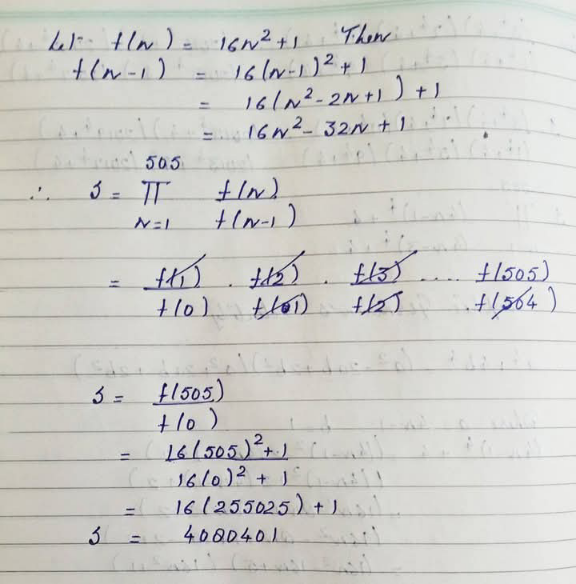 Let f(n) = 16n² + 1 Then
f(n-1) = 16(n-1)² + 1
= 16(n² - 2n + 1) + 1
= 16n² - 32n + 1
505
∴ S = ∏ f(n)
n=1 f(n-1)
= f(1) . f(2) . f(3) .... f(505)
f(0) f(1) f(2) . f(504)
S = f(505)
f(0)
= 16(505)² + 1
16(0)² + 1
= 16(255025) + 1
S = 4080401